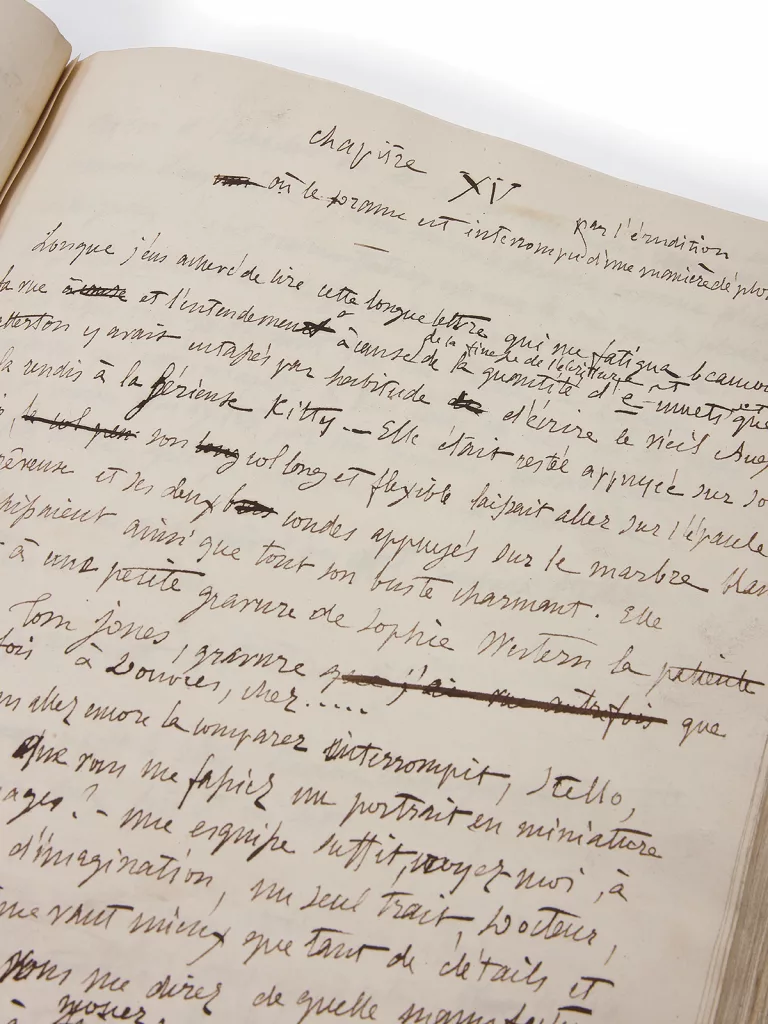 chapitre XIV
où le drame est interrompu par l'érudition d'une manière déplo
Lorsque j'eus achevé de lire cette longue lettre qui me fatigua beaucou
la vue et l'entendement à cause de la finesse de l'écriture et de la quantité d'e muets que
atterton y avait entassés par habitude d'écrire le vieil Ang
la rendis à la sérieuse Kitty. — Elle était restée appuyée sur so
son col long et flexible laissait aller sur l'épaule
rêveuse et ses deux coudes appuyés sur le marbre blan
chissaient ainsi que tout son buste charmant. Elle
à une petite gravure de Sophie Western la patiente
Tom Jones, gravure que j'ai vue autrefois que
fois à Douvres, chez.....
allez encore la comparer interrompit, Stello,
que vous me fassiez un portrait en miniature
ages? — une esquisse suffit, croyez moi, à
d'imagination, un seul trait, Docteur,
me vaut mieux que tant de détails et
vous me direz de quelle manufacture